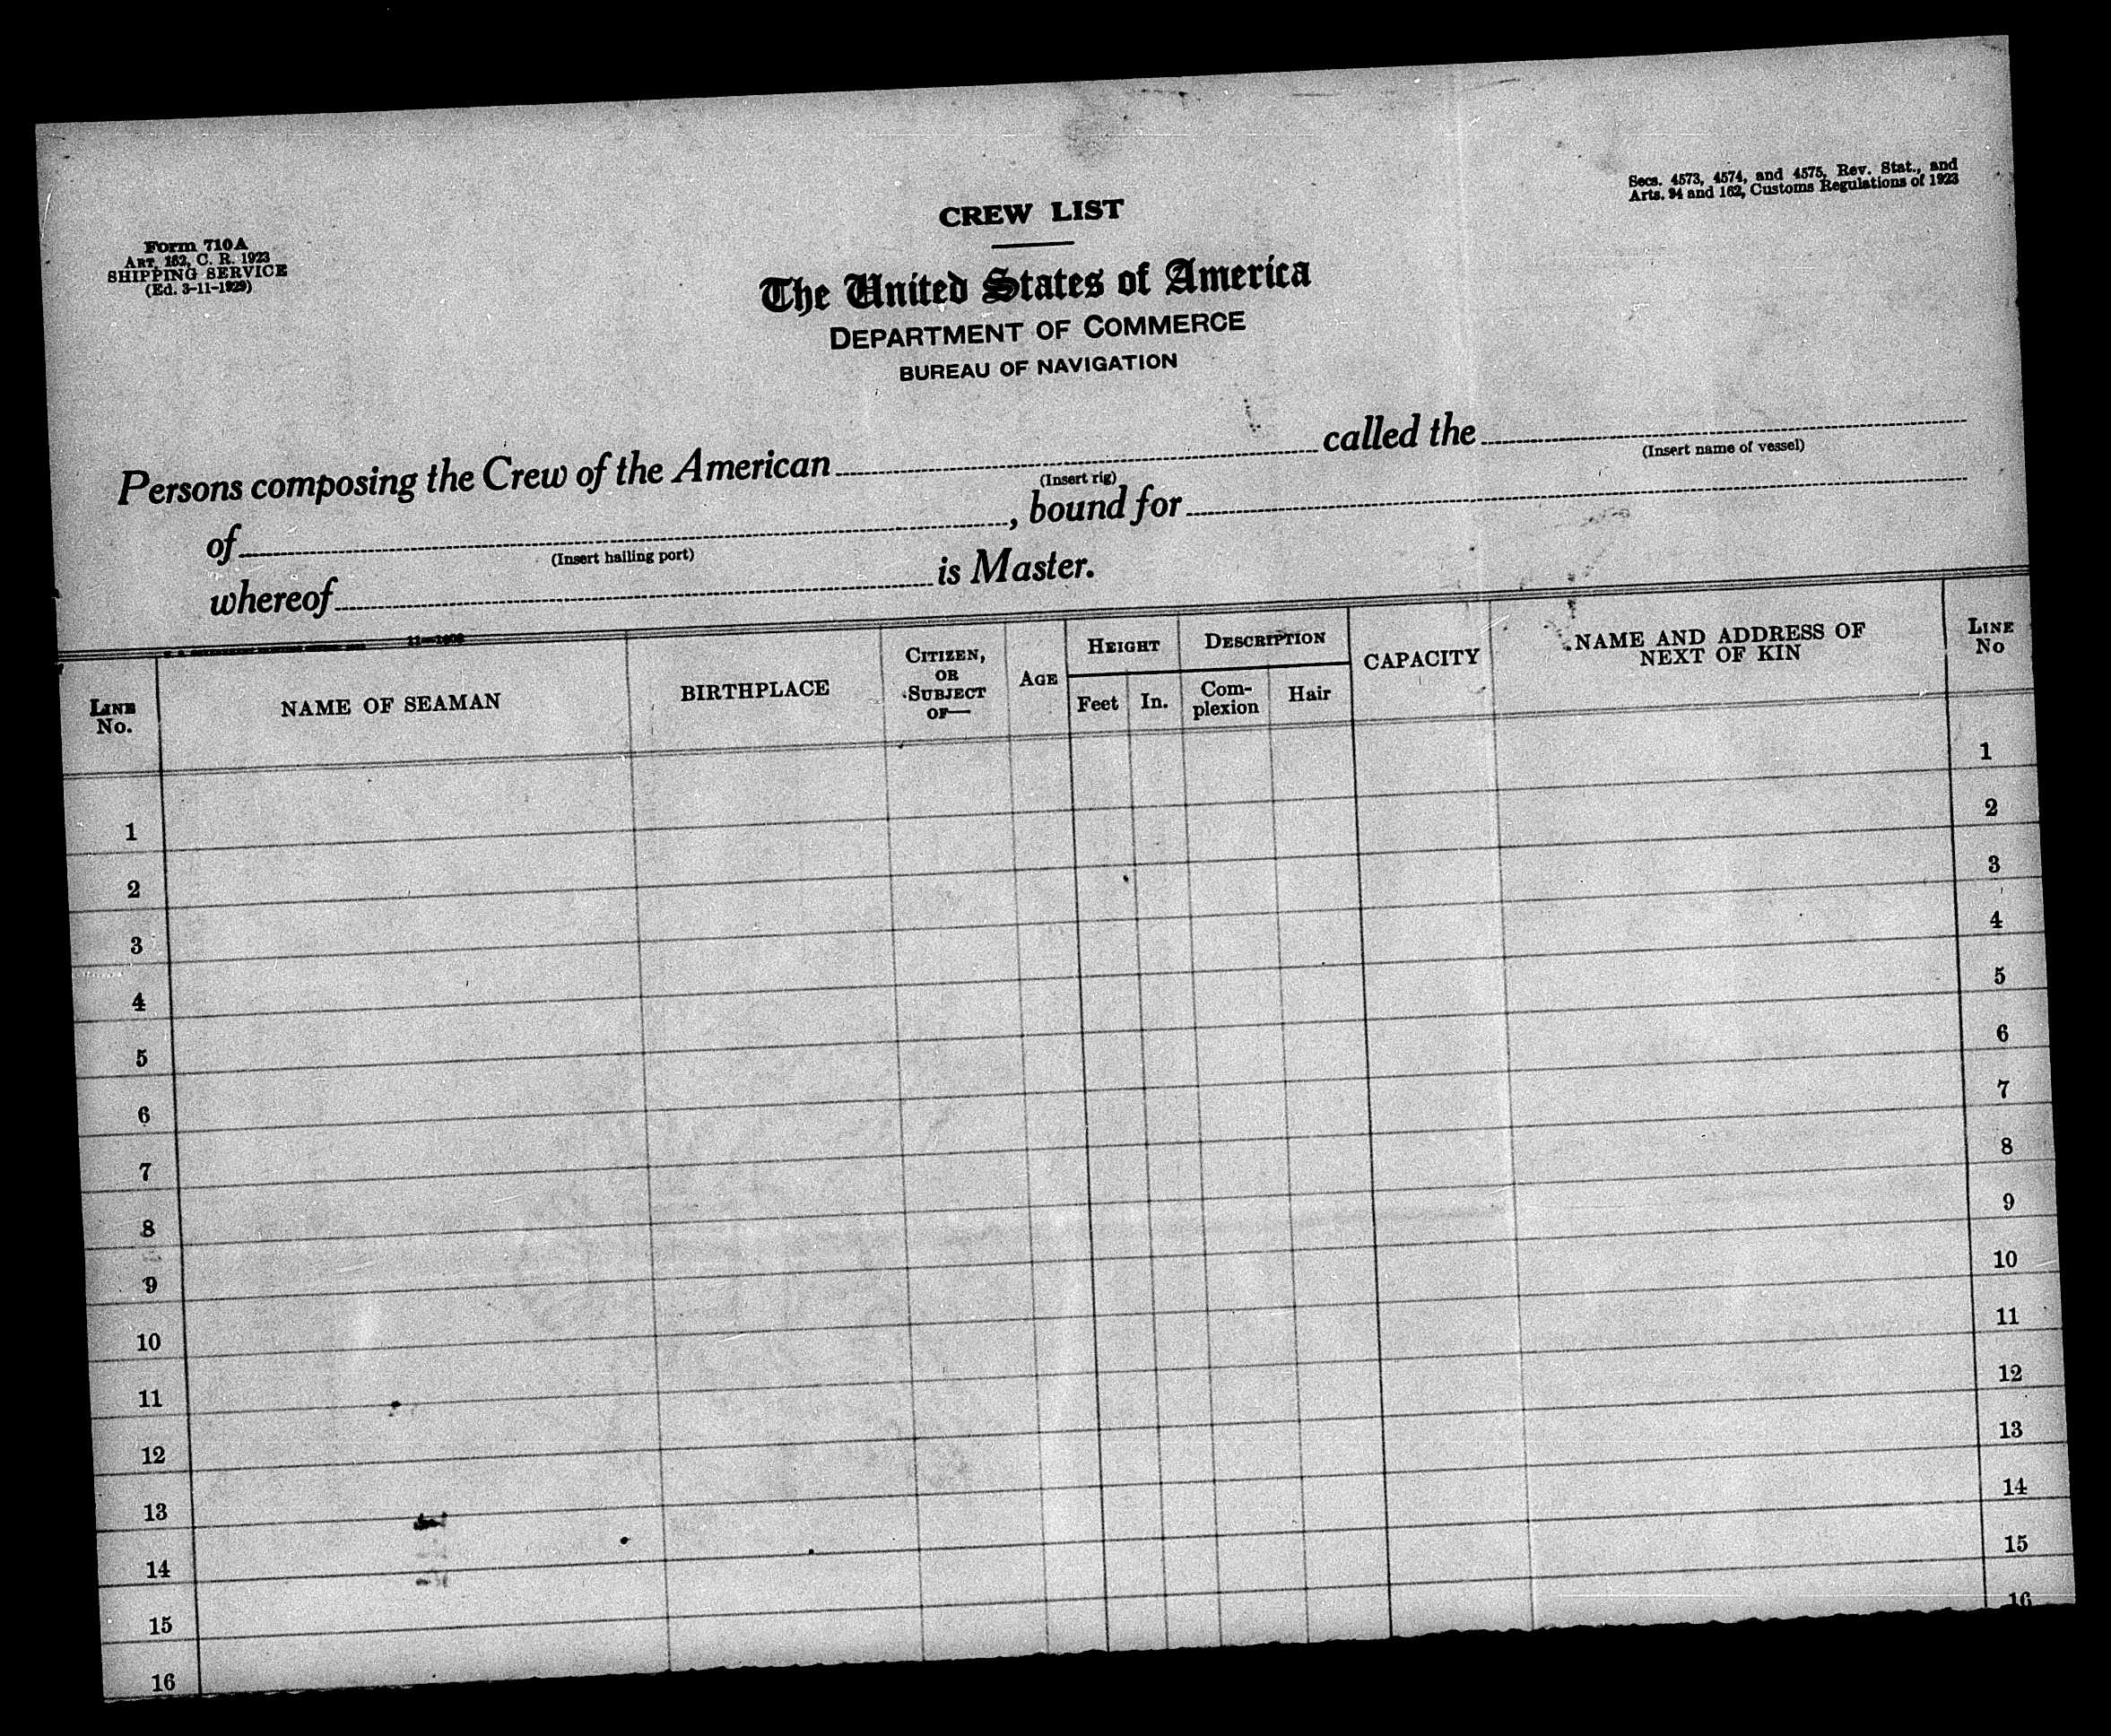 Secs. 4573, 4574, and 4575, Rev. Stat., and
Arts. 94 and 162, Customs Regulations of 1923
Form 710A
ART. 162, C. R. 1923
SHIPPING SERVICE
(Ed. 3-11-1929)
CREW LIST
The United States of America
DEPARTMENT OF COMMERCE
BUREAU OF NAVIGATION
Persons composing the Crew of the American called the
(Insert rig) (Insert name of vessel)
of , bound for
(Insert hailing port)
whereof is Master.
LINE No. NAME OF SEAMAN BIRTHPLACE CITIZEN, OR SUBJECT OF— AGE HEIGHT Feet In. DESCRIPTION Com-plexion Hair CAPACITY NAME AND ADDRESS OF NEXT OF KIN LINE No
1 1
2 2
3 3
4 4
5 5
6 6
7 7
8 8
9 9
10 10
11 11
12 12
13 13
14 14
15 15
16 16